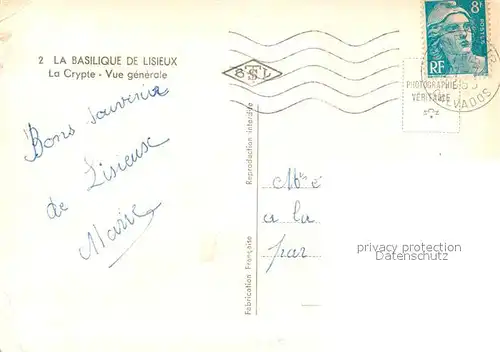 2 LA BASILIQUE DE LISIEUX
La Crypte - Vue générale
Bons souvenirs
de Lisieux
Marie
BSL
Reproduction interdite
Fabrication Française
8F
POSTES
RF
PHOTOGRAPHIE
VÉRITABLE
CALVADOS
a la
par
privacy protection
Datenschutz